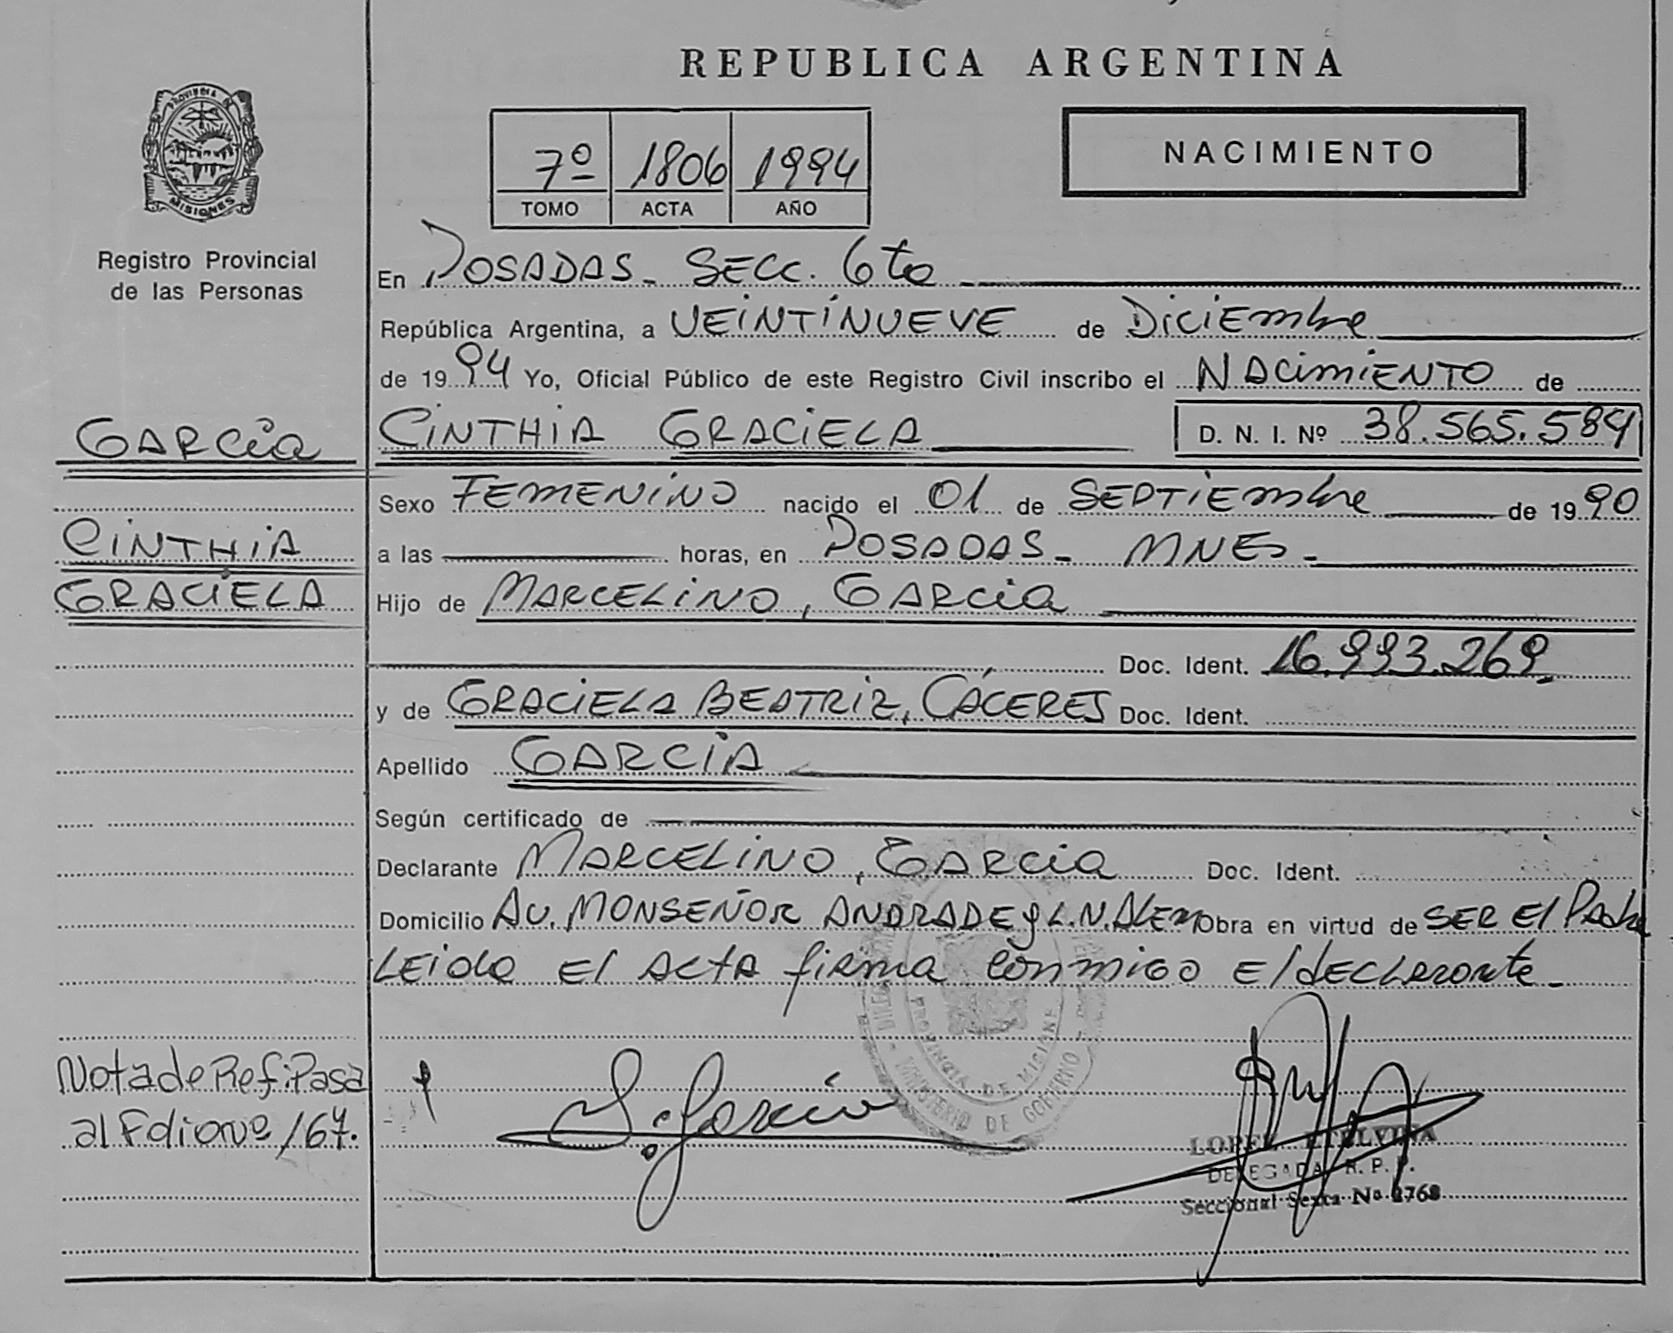 REPUBLICA ARGENTINA
PROVINCIA DE
MISIONES
7º 1806 1994
TOMO ACTA AÑO
NACIMIENTO
Registro Provincial
de las Personas
En POSADAS - SECC. 6ta
República Argentina, a VEINTINUEVE de Diciembre
de 1994 Yo, Oficial Público de este Registro Civil inscribo el NACIMIENTO de
GARCIA
CINTHIA GRACIELA D. N. I. Nº 38.565.584
Sexo FEMENINO nacido el 01 de SEPTIEMbre de 1990
CINTHIA
a las horas, en POSADAS - MNES -
GRACIELA
Hijo de MARCELINO, GARCIA
Doc. Ident. 16.993.269
y de GRACIELA BEATRIZ, CÁCERES Doc. Ident.
Apellido GARCÍA
Según certificado de
Declarante MARCELINO, GARCIA Doc. Ident.
Domicilio AV. MONSEÑOR ANDRADE y L.N. ALEM Obra en virtud de SER El Padre
LEIDA El ACTA firma conmigo El dECLARANTE -
PROVINCIA DE MISIONES
MINISTERIO DE GOBIERNO
Nota de Ref: Pasa
al Folio nº 167.
LOPEZ ETELVINA
DELEGADA R. P. P.
Seccional Sexta Nº 2768